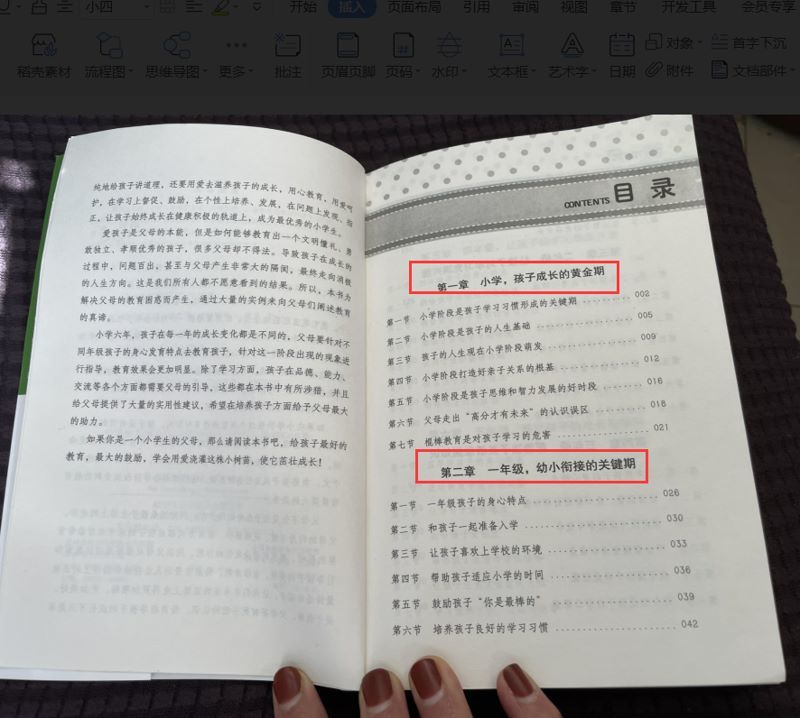 小四
开始
插入
页面布局
引用
审阅
视图
章节
开发工具
会员专享
稻壳素材
流程图
思维导图
更多
批注
页眉页脚
页码
水印
文本框
艺术字
日期
对象
附件
首字下沉
文档部件
纯地给孩子讲道理，还要用爱去滋养孩子的成长，用心教育，用爱呵
护，在学习上督促、鼓励，在个性上培养、发展，在问题上发现、指
正，让孩子始终成长在健康积极的轨道上，成为最优秀的小学生。
爱孩子是父母的本能，但是如何能够教育出一个文明懂礼、勇
敢独立、孝顺优秀的孩子，很多父母却不得法。导致孩子在成长的
过程中，问题百出，甚至与父母产生非常大的隔阂，最终走向消极
的人生方向。这是我们所有人都不愿意看到的结果。所以，本书为
解决父母的教育困惑而产生，通过大量的实例来向父母们阐述教育
的真谛。
小学六年，孩子在每一年的成长变化都是不同的，父母要针对不
同年级孩子的身心发育特点去教育孩子，针对这一阶段出现的现象进
行指导，教育效果会更加明显。除了学习方面，孩子在品德、能力、
交流等各个方面都需要父母的引导，这些都在本书中有所涉猎，并且
给父母提供了大量的实用性建议，希望在培养孩子方面给予父母最大
的助力。
如果你是一个小学生的父母，那么请阅读本书吧，给孩子最好的
教育，最大的鼓励，学会用爱浇灌这株小树苗，使它茁壮成长！
CONTENTS 目 录
第一章 小学，孩子成长的黄金期
第一节 小学阶段是孩子学习习惯形成的关键期 002
第二节 小学阶段是孩子的人生基础 005
第三节 孩子的人生观在小学阶段萌发 009
第四节 小学阶段打造好亲子关系的根基 012
第五节 小学阶段是孩子思维和智力发展的好时段 016
第六节 父母走出“高分才有未来”的认识误区 018
第七节 棍棒教育是对孩子学习的危害 021
第二章 一年级，幼小衔接的关键期
第一节 一年级孩子的身心特点 026
第二节 和孩子一起准备入学 030
第三节 让孩子喜欢上学校的环境 033
第四节 帮助孩子适应小学的时间 036
第五节 鼓励孩子“你是最棒的” 039
第六节 培养孩子良好的学习习惯 042